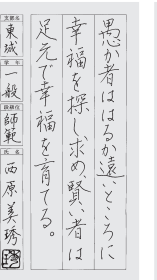 愚か者ははるか遠いところに
幸福を探し求め賢い者は
足元で幸福を育てる。
支部名
東城
学年
一般
段級位
師範
氏名
西原美琇